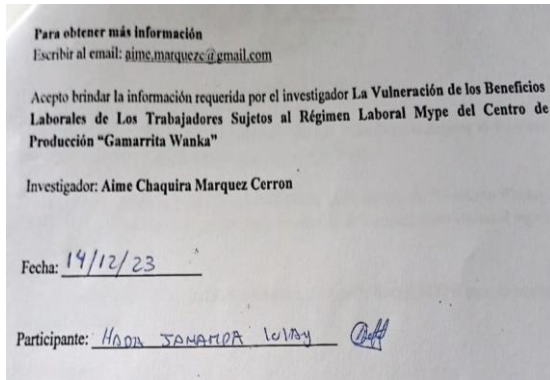 Para obtener más información
Escribir al email: aime.marquezc@gmail.com
Acepto brindar la información requerida por el investigador La Vulneración de los Beneficios
Laborales de Los Trabajadores Sujetos al Régimen Laboral Mype del Centro de
Producción “Gamarrita Wanka”
Investigador: Aime Chaquira Marquez Cerron
Fecha: 14/12/23
Participante: HADA JANAMPA